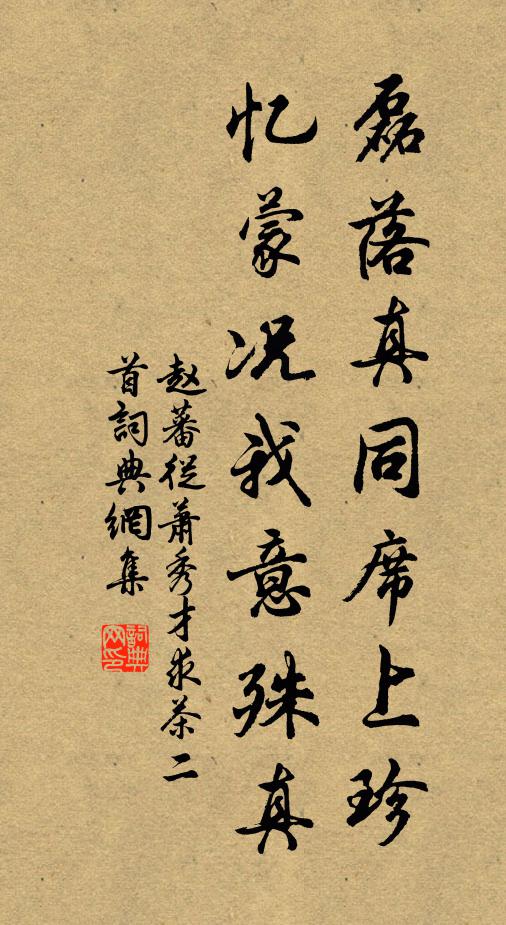 磊落真同席上珍
忆蒙况我意殊真
赵蕃從蕭秀才求茶二
首詞典網集
詞典网印